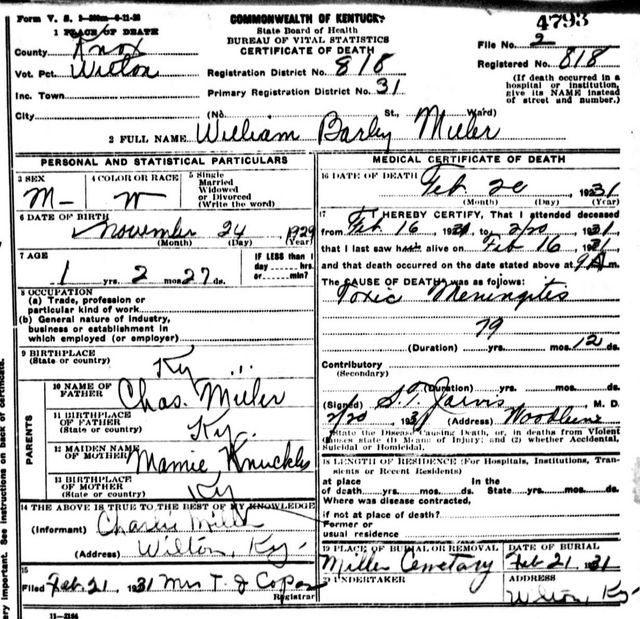 Form V. S.
COMMONWEALTH OF KENTUCKY
4793
1 PLACE OF DEATH
State Board of Health
BUREAU OF VITAL STATISTICS
CERTIFICATE OF DEATH
File No. 2
County Knox
Registered No. 818
Vot. Pct. Wilton
Registration District No. 818
(If death occurred in a hospital or institution, give its NAME instead of street and number.)
Inc. Town
Primary Registration District No. 31
City (No. St., Ward)
2 FULL NAME William Barley Miller
PERSONAL AND STATISTICAL PARTICULARS
3 SEX
M-
4 COLOR OR RACE
W
5 Single
Married
Widowed
or Divorced
(Write the word)
6 DATE OF BIRTH
November 24 1929
(Month) (Day) (Year)
7 AGE
1 yrs. 2 mos. 27 ds.
IF LESS than 1
day hrs.
or min?
8 OCCUPATION
(a) Trade, profession or
particular kind of work
(b) General nature of industry,
business or establishment in
which employed (or employer)
9 BIRTHPLACE
(State or country)
Ky
PARENTS
10 NAME OF
FATHER
Chas. Miller
11 BIRTHPLACE
OF FATHER
(State or country)
Ky.
12 MAIDEN NAME
OF MOTHER
Mamie Knuckles
13 BIRTHPLACE
OF MOTHER
(State or country)
Ky
14 THE ABOVE IS TRUE TO THE BEST OF MY KNOWLEDGE
(Informant) Charlie
(Address) Wilton, Ky-
15
Filed Feb. 21, 1931 Mrs T. J
Registrar
11-2184
MEDICAL CERTIFICATE OF DEATH
16 DATE OF DEATH
Feb 20, 1931
(Month) (Day) (Year)
17 I HEREBY CERTIFY, That I attended deceased
from Feb 16, 1931, to 2/20, 1931
that I last saw alive on Feb 16, 1931
and that death occurred on the date stated above at 9 m.
The CAUSE OF DEATH was as follows:
Toxic Meningitis
79
(Duration) yrs. mos. 12 ds.
Contributory
(Secondary)
(Duration) yrs. mos. ds.
(Signed) S.T. Jarvis, M. D.
2/20, 1931 (Address) Woodbine
State the Disease Causing Death, or, in deaths from Violent
Causes state (1) Means of Injury; and (2) whether Accidental,
Suicidal or Homicidal.
18 LENGTH OF RESIDENCE (For Hospitals, Institutions, Transients or Recent Residents)
at place In the
of death yrs. mos. ds. State yrs. mos. ds.
Where was disease contracted,
if not at place of death?
Former or
usual residence
19 PLACE OF BURIAL OR REMOVAL
Miller Cemetary
DATE OF BURIAL
Feb 21, 31
20 UNDERTAKER
ADDRESS
Wilton, Ky-
See instructions on back of certificate.